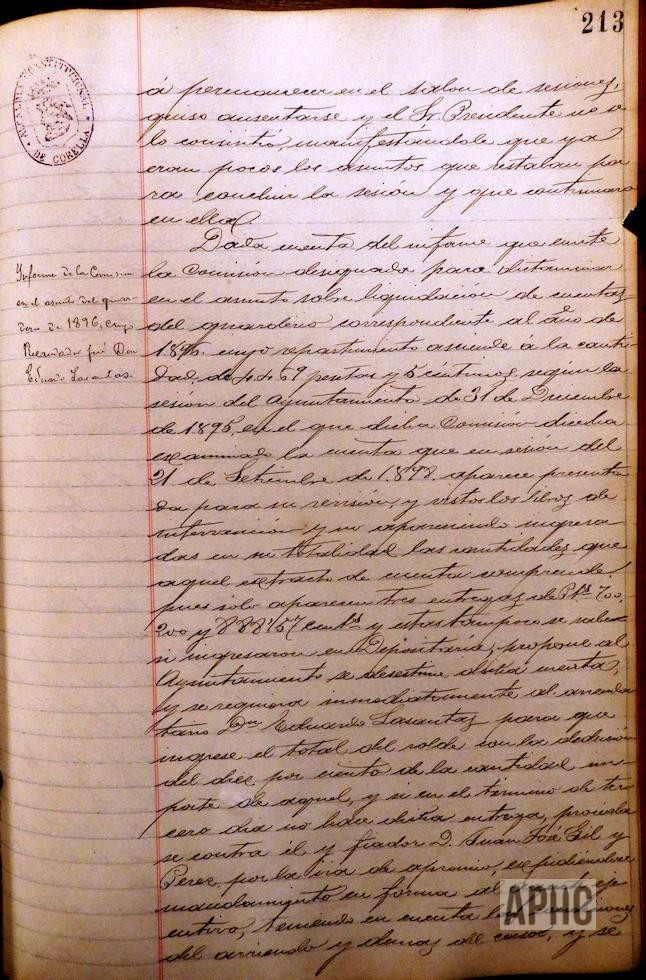 213
ALCALDIA CONSTITUCIONAL
DE CORELLA
á permanecer en el salon de sesiones,
quiso ausentarse y el Sr. Presidente no se
lo consintió, manifestándole que ya
eran pocos los asuntos que restaban pa
ra concluir la sesión y que continuara
en ella.
Informe de la Comision
en el asunto del guar-
derio de 1896, cuyo
Recaudador fué Don
Eduardo Lasantas.
Dada cuenta del informe que emite
la Comisión designada para dictaminar
en el asunto sobre liquidación de cuentas
del guarderio correspondiente al año de
1896, cuyo repartimiento asciende á la canti
dad de 4469 pesetas y 5 centimos, según la
sesión del Ayuntamiento de 31 de Diciembre
de 1895, en el que dicha Comision
examinado la cuenta que en sesión del
21 de Setiembre de 1898 aparece presenta
da para su revisión, y vistos los libros de
intervención y no apareciendo ingresa
das en su totalidad las cantidades que
aquel extracto de cuenta comprende,
pues solo aparecen tres entregas de Pts 700,
200 y 888'57 cents y estas tampoco se sabe
si ingresaron en Depositaría, propone al
Ayuntamiento se desestime dicha cuenta,
y se requiera inmediatamente al arrenda
tario Dn Eduardo Lasantas para que
ingrese el total del rolde con la deducción
del diez por ciento de la cantidad im-
porte de aquel, y si en el término de ter
cero dia no hace dicha entrega, proceda
se contra él y fiador D. Juan José Gil y
Perez por la via de apremio, expidiendose
mandamiento en forma al eje
cutivo, teniendo en cuenta las
del arriendo y demas del caso, y se
APHC